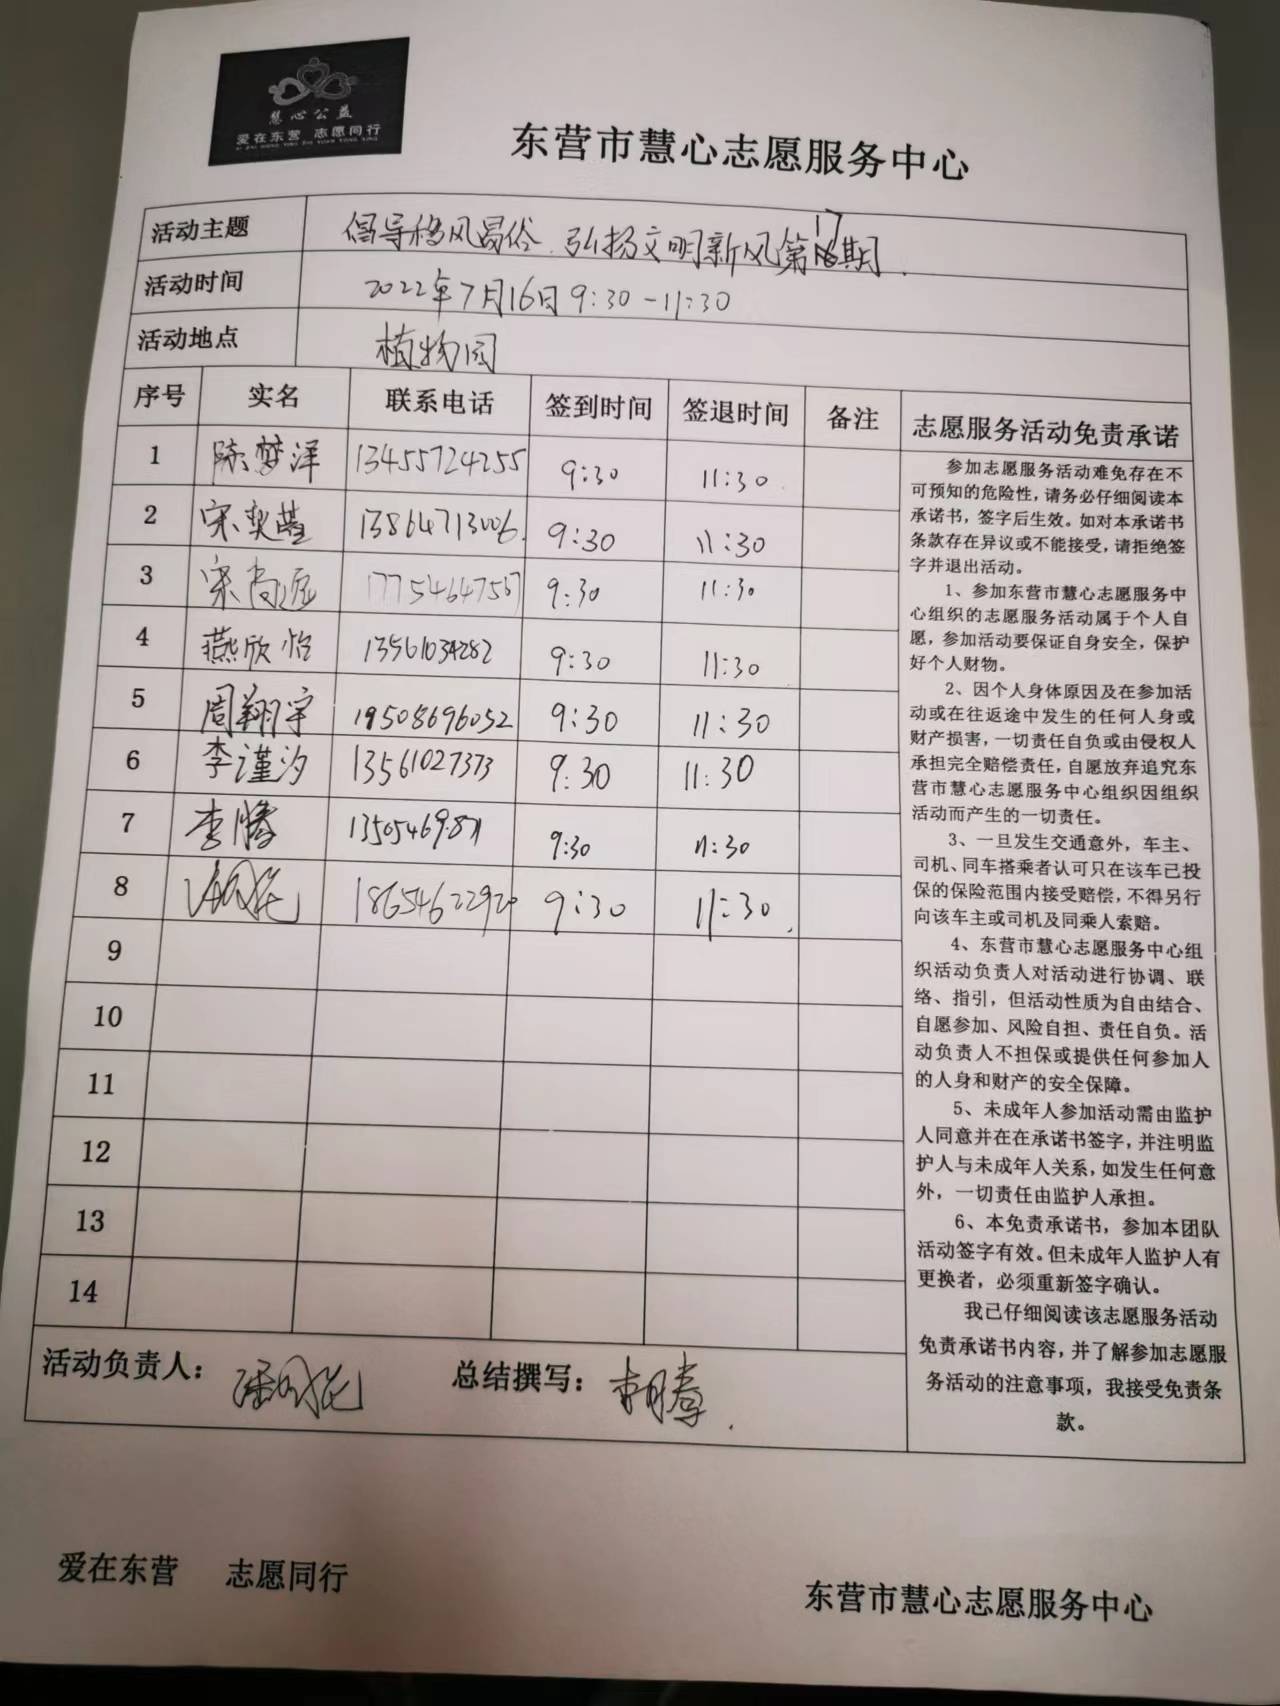 慧心公益
爱在东营 志愿同行
东营市慧心志愿服务中心
活动主题 倡导移风易俗.弘扬文明新风第17期.
活动时间 2022年7月16日9:30-11:30
活动地点 植物园
序号 实名 联系电话 签到时间 签退时间 备注 志愿服务活动免责承诺
1 陈梦洋 13455724255 9:30 11:30
2 宋奕萱 13864713006 9:30 11:30
3 宋尚远 17754647567 9:30 11:30
4 燕欣怡 13561034282 9:30 11:30
5 周翔宇 19508696052 9:30 11:30
6 李谨汐 13561027373 9:30 11:30
7 李腾 9:30 11:30
8 9:30 11:30
9
10
11
12
13
14
参加志愿服务活动难免存在不
可预知的危险性,请务必仔细阅读本
承诺书,签字后生效。如对本承诺书
条款存在异议或不能接受,请拒绝签
字并退出活动。
1、参加东营市慧心志愿服务中
心组织的志愿服务活动属于个人自
愿,参加活动要保证自身安全,保护
好个人财物。
2、因个人身体原因及在参加活
动或在往返途中发生的任何人身或
财产损害,一切责任自负或由侵权人
承担完全赔偿责任,自愿放弃追究东
营市慧心志愿服务中心组织因组织
活动而产生的一切责任。
3、一旦发生交通意外,车主、
司机、同车搭乘者认可只在该车已投
保的保险范围内接受赔偿,不得另行
向该车主或司机及同乘人索赔。
4、东营市慧心志愿服务中心组
织活动负责人对活动进行协调、联
络、指引,但活动性质为自由结合、
自愿参加、风险自担、责任自负。活
动负责人不担保或提供任何参加人
的人身和财产的安全保障。
5、未成年人参加活动需由监护
人同意并在在承诺书签字,并注明监
护人与未成年人关系,如发生任何意
外,一切责任由监护人承担。
6、本免责承诺书,参加本团队
活动签字有效。但未成年人监护人有
更换者,必须重新签字确认。
我已仔细阅读该志愿服务活动
免责承诺书内容,并了解参加志愿服
务活动的注意事项,我接受免责条
款。
活动负责人: 总结撰写:
爱在东营 志愿同行
东营市慧心志愿服务中心